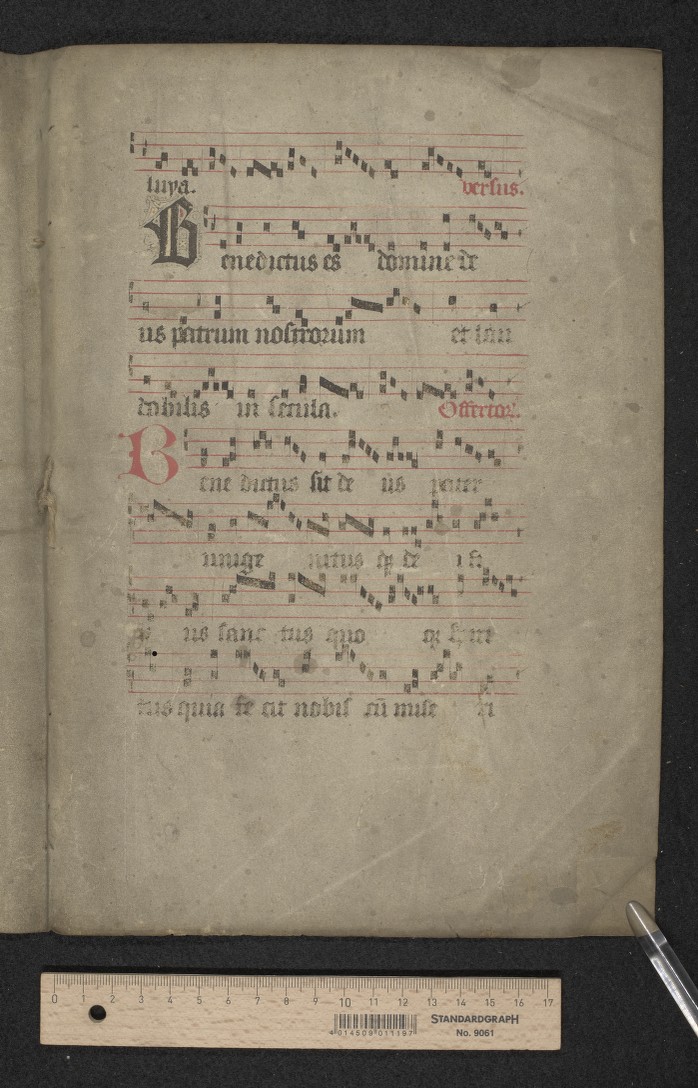 luya. versus.
Benedictus es domine de
us patrum nostrorum et lau
dabilis in secula. Offertor.
Bene dictus sit de us pater
unige nitus qȝ de i fi
us sanc tus quo qȝ spirit
tus quia fe cit nobis cū mise ri
0 1 2 3 4 5 6 7 8 9 10 11 12 13 14 15 16 17
4 014509 011197
STANDARDGRAPH
No. 9061